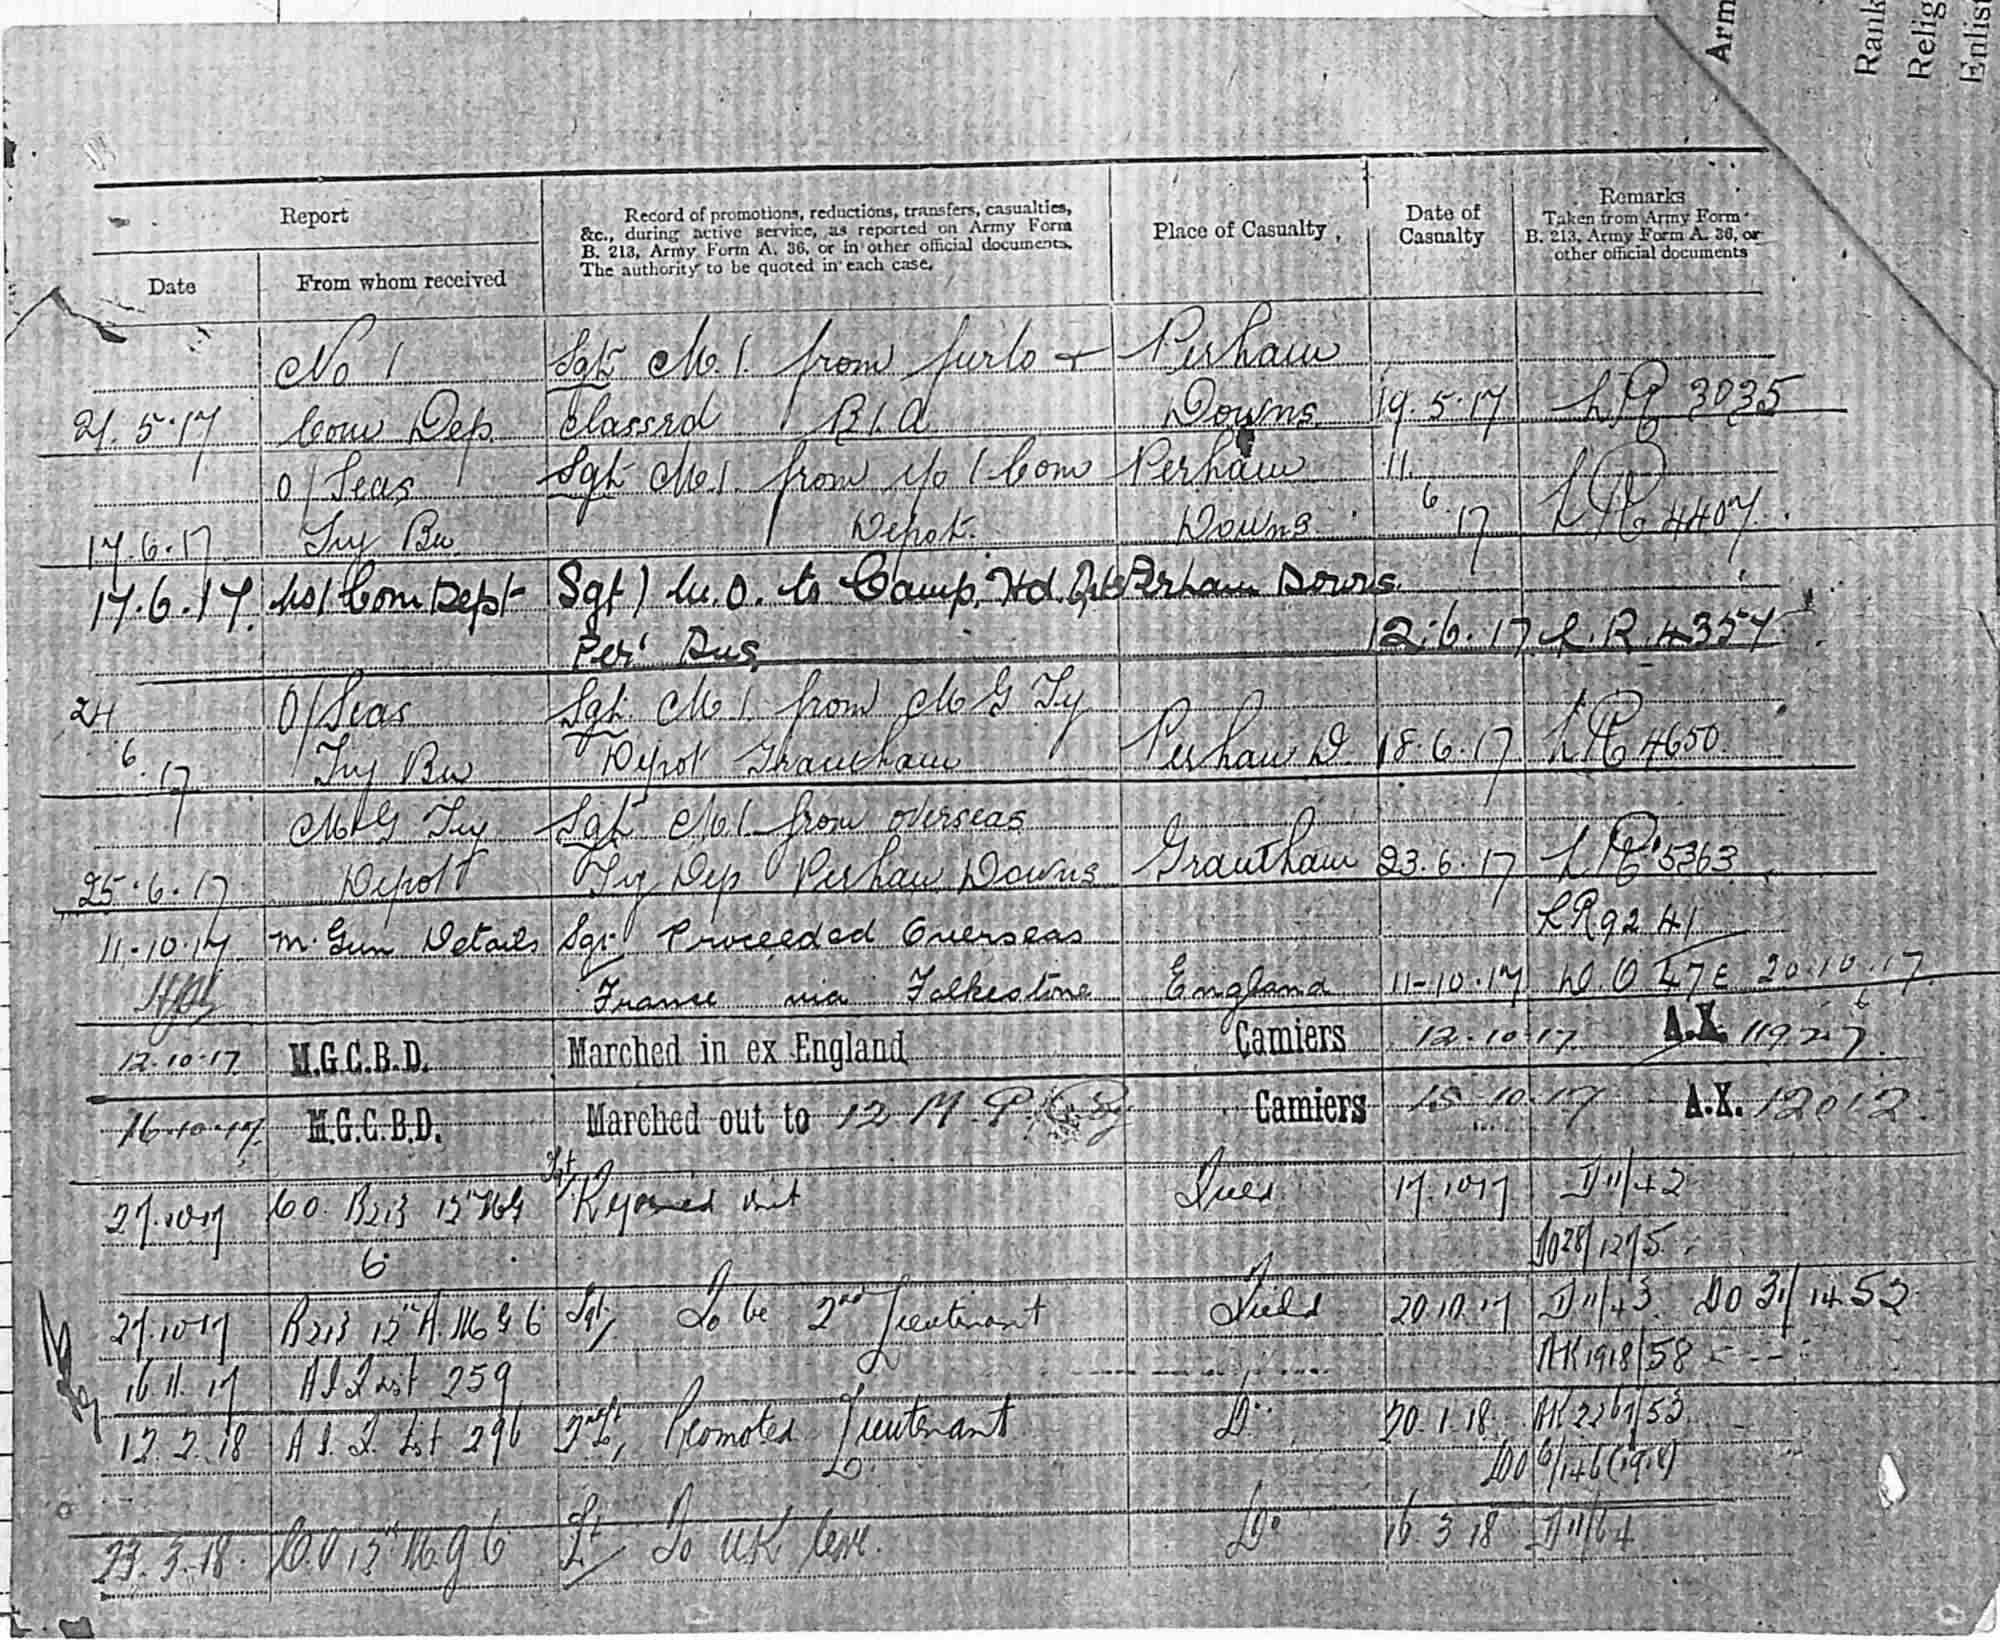 Arm
Rank
Relig
Enlist
Report
Record of promotions, reductions, transfers, casualties,
&c., during active service, as reported on Army Form
B. 213, Army Form A. 36, or in other official documents.
The authority to be quoted in each case.
Place of Casualty
Date of
Casualty
Remarks
Taken from Army Form
B. 213, Army Form A. 36, or
other official documents
Date
From whom received
No 1 Sgt M.I. from furlo + Perham
21.5.17 Com Dep. Classed B1A Downs 19.5.17 LR 3035
O/Seas Sgt M.I. from No 1 Com Perham 11.
17.6.17 Trg Bn Depot. Downs 6.17 LR 4407.
17.6.17. No1 Com Dept Sgt) M.O. to Camp. Hd. Qrs Perham Downs.
Per' Dns 12.6.17 L.R. 4357
24 O/Seas Sgt. M.I. from M G Tg
6.17 Trg Bn Depot Grantham Perham D. 18.6.17 LR 4650.
M G Trg Sgt M.I. from overseas
25.6.17 Depot Trg Dep Perham Downs Grantham 23.6.17 LR 5363
11.10.17 M. Gun Details Sgt Proceeded Overseas LR 9241
France via Folkestone England 11-10.17 D.O 47E 20.10.17.
12.10.17 M.G.C.B.D. Marched in ex England Camiers 12.10.17 A.X. 11927
16.10.17. M.G.C.B.D. Marched out to 12 M. G. Camiers 15.10.17 A.X. 12012.
27.10.17 CO. B213 12th MG Sgt Rejoined unit Field 17.10.17 D11/42
C DO28/1275
27.10.17 B213 12th A.M G C Sgt, To be 2nd Lieutenant Field 20.10.17 D11/43 DO 31/1452
16.11.17 A I F List 259 AK1918/58
12.2.18 A I. F. List 296 2nd Lt, Promoted Lieutenant Do 20.1.18 AK2267/53
DO 6/146 (1918)
23.3.18. C.O 12th M G C Lt To UK leave. Do 16.3.18 D11/64